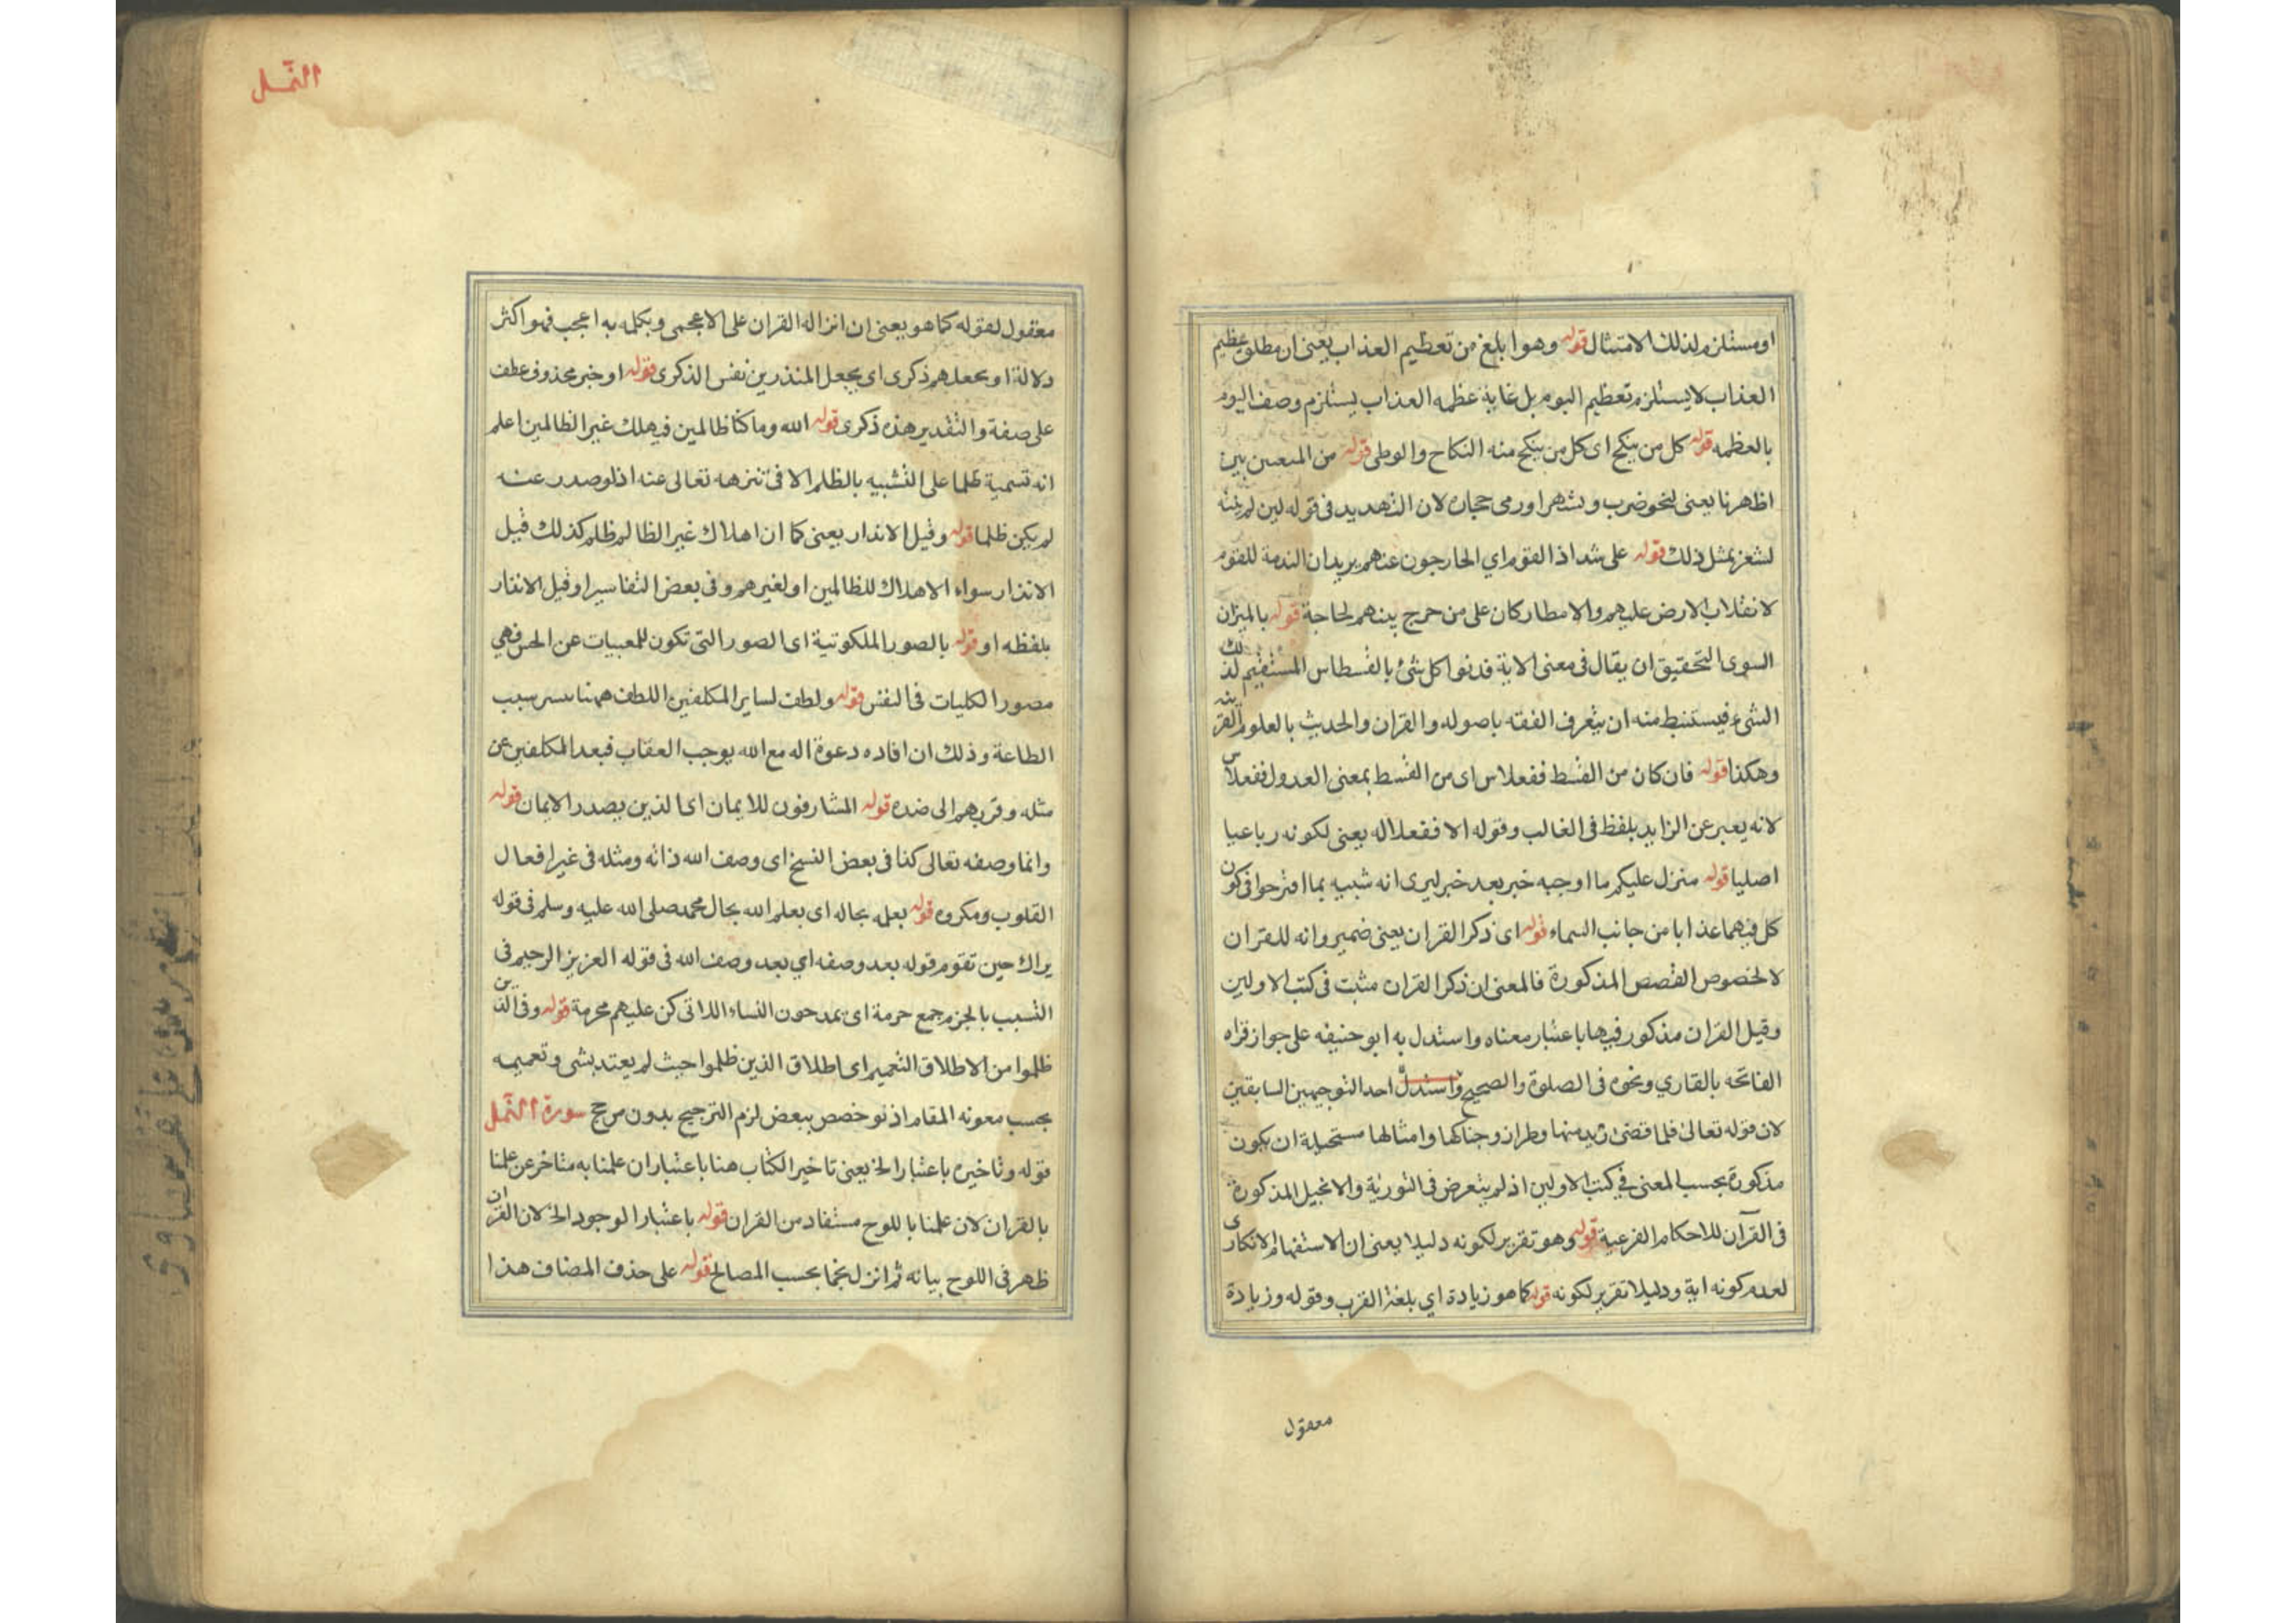 او مستلزم لذلك الامتثال قوله وهو ابلغ من تعظيم العذاب يعنى ان مطلق عظيم
العذاب لا يستلزم تعظيم اليوم بل غاية عظمه العذاب يستلزم وصف اليوم
بالعظمه قوله كل من ينكح اى كل من ينكح منه النكاح والوطى قوله من المبعين بين
اظهرنا يعنى لنحو ضرب وشهر او رمى حجان لان التهديد فى قوله لين لم تنته
لشعر بمثل ذلك قوله على شداذ القوم اي الخارجون عنهم يريد ان الندمة للقوم
لانقلاب الارض عليهم والامطار كان على من خرج بينهم لحاجة قوله بالميزان
السوى التحقيق ان يقال فى معنى الاية قدنوا كل شئ بالقسطاس المستقيم لذلك
الشئ فيستنبط منه ان يتعرف الفقه باصوله والقران والحديث بالعلوم
وهكذا قوله فان كان من القسط ففعلاس اى من القسط بمعنى العدول ففعلاس
لانه يعبر عن الزايد بلفظ فى الغالب وقوله الا ففعلاله يعنى لكونه رباعيا
اصليا قوله منزل عليكم ما اوجبه خبر بعد خبر ليرى انه شبيه بما افترحوا فى كون
كل فيهما عذابا من جانب السماء قوله اى ذكر القران يعنى ضمير وانه للقران
لا لخصوص القصص المذكورة فالمعنى ان ذكر القران مثبت فى كتب الاولين
وقيل القران مذكور فيها باعتبار معناه واستدل به ابو حنيفه على جواز قراه
الفاتحه بالفاري ونحوه فى الصلوة والصحيح واستدل احد التوجيهين السابقين
لان قوله تعالى فلما قضى زيد منها وطرا زوجناكها وامثالها مستحيلة ان يكون
مذكورة بحسب المعنى فى كتب الاولين اذ لم يتعرض فى التورية والانجيل المذكورة
فى القرآن للاحكام الفرعية قوله وهو تقرير لكونه دليلا يعنى ان الاستفهام الانكارى
لعدم كونه اية ودليلا تقرير لكونه قوله كما هو زيادة اي بلغة القرب وقوله وزيادة
معقول
النمل
معقول لقوله كما هو يعنى ان انزاله القران على الاعجمى وبكله به اعجب فهو اكثر
دلالة او بجعلهم ذكرى اى بجعل المنذرين نفس الذكرى قوله او خبر محذوف عطف
على صفة والتقدير هذه ذكرى قوله الله وما كنا ظالمين فيهلك غير الظالمين اعلم
انه تسمية ظلما على التشبيه بالظلم الا فى تنزهه تعالى عنه اذ لو صدر عنه
لم يكن ظلما قوله وقيل الانذار يعنى كما ان اهلاك غير الظالم ظلم كذلك قبل
الانذار سواء الاهلاك للظالمين او لغيرهم وفى بعض التفاسير او قيل الانذار
بلفظه او قوله بالصور الملكوتية اى الصور التى تكون للمعبيات عن الحس فهي
مصور الكليات فى النفس قوله ولطف لساير المكلفين اللطف ههنا سبب
الطاعة وذلك ان افاده دعوة اله مع الله يوجب العقاب فبعد المكلفين عن
مثله وقربهم الى ضده قوله المشارفون للايمان اى الذين بصدر الايمان قوله
وانما وصفه تعالى كذا فى بعض النسخ اى وصف الله ذاته ومثله فى غير افعال
القلوب ومكروه قوله بعلمه بحاله اى بعلم الله بحال محمد صلى الله عليه وسلم فى قوله
يراك حين تقوم قوله بعد وصفه اي بعد وصف الله فى قوله العزيز الرحيم فى
التسبب بالجزم جمع حرمة اى يمدحون النساء اللاتى كن عليهم محرمة قوله وفى الذين
ظلموا من الاطلاق التعميم اى اطلاق الذين ظلموا حيث لم يعتد بشى وتعميمه
بحسب معونه المقام اذ نو خصص ببعض لزم الترجيح بدون مرجح سورة النمل
قوله وتاخيره باعتبار الخ يعنى تاخير الكتاب هنا باعتبار ان علمنا به متاخر عن علمنا
بالقران لان علمنا باللوح مستفاد من القران قوله باعتبار الوجود الخ لان القران
ظهر فى اللوح بيانه ثم انزل نجما بحسب المصالح قوله على حذف المضاف هذا